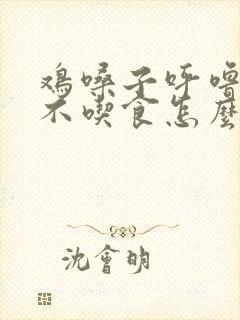 鸡嗓子呼噜
不喫食怎麼
沈會明